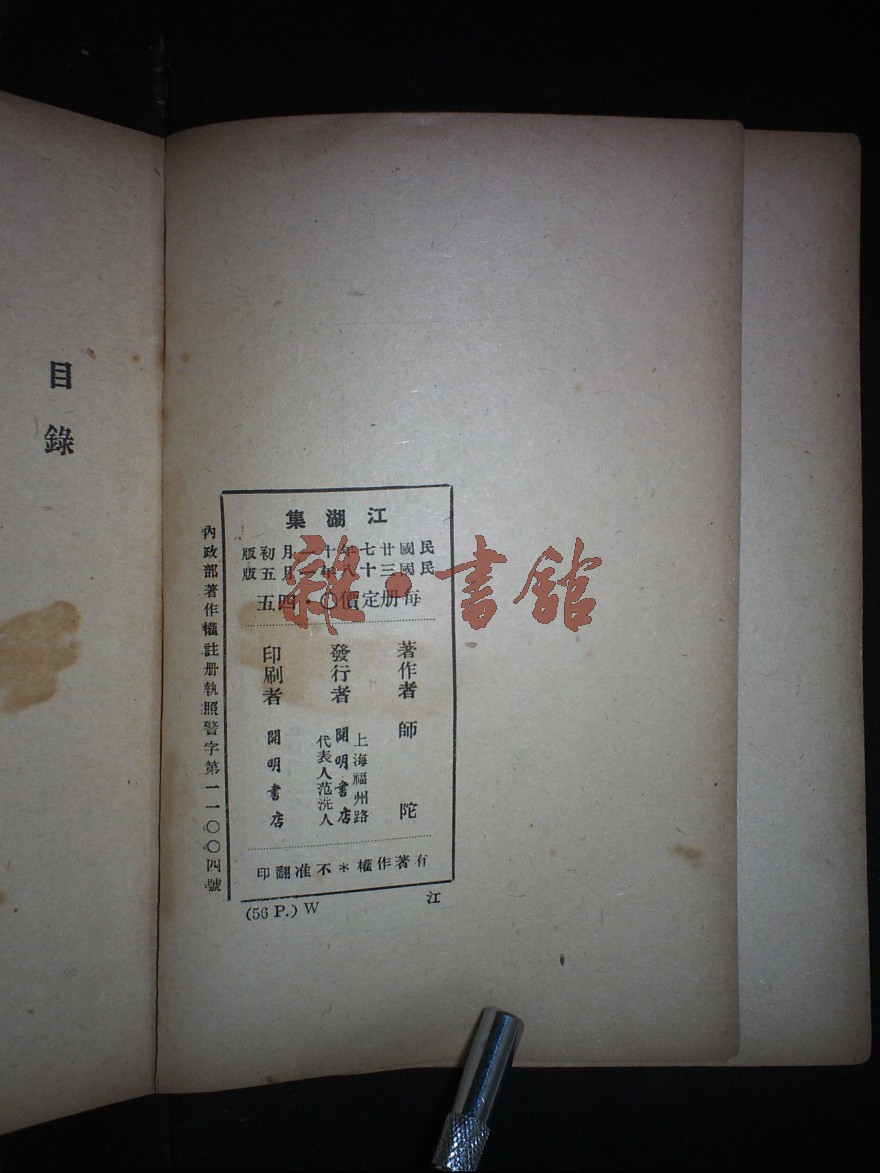 目錄
江湖集
民國廿七年十一月初版
民國三十八年一月五版
每册定價〇·四五
著作者 師陀
發行者 開明書店
上海福州路
代表人范洗人
印刷者 開明書店
有著作權＊不准翻印
內政部著作權註册執照警字第一一〇〇四號
(56 P.) W
江
雜·書館